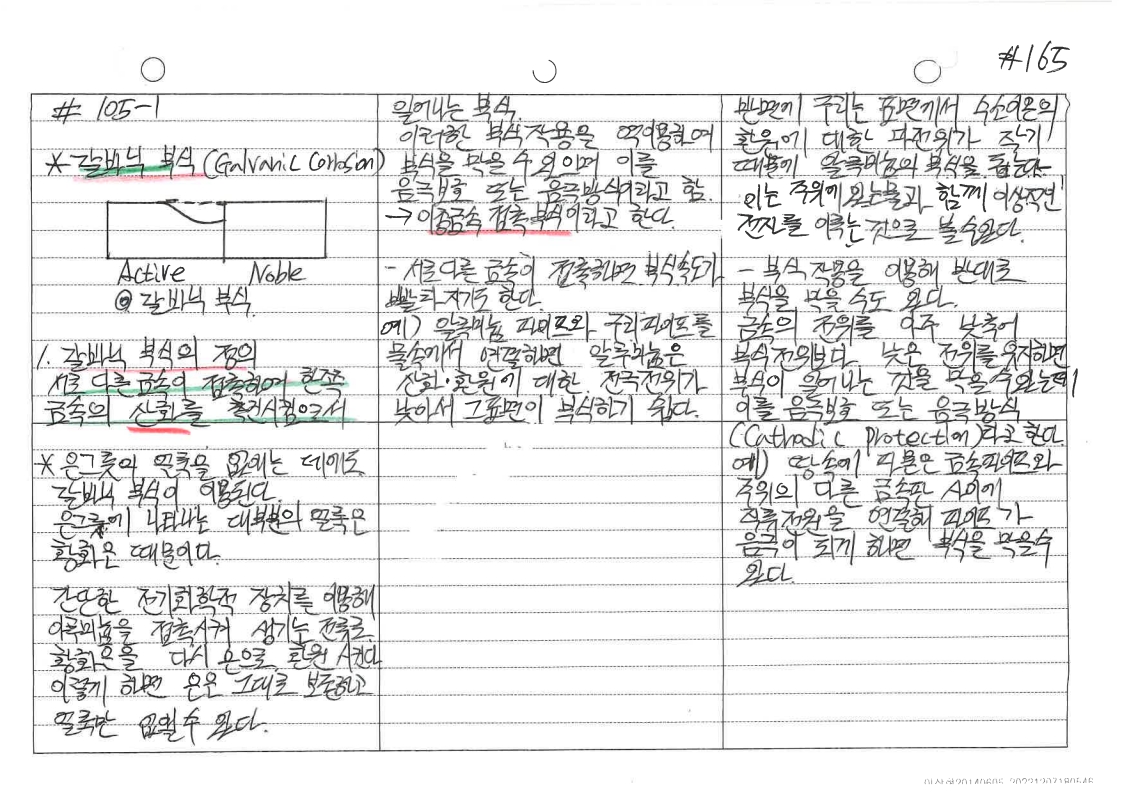 #165
# 105-1
* 갈바닉 부식 (Galvanic Corrosion)
Active Noble
@ 갈바닉 부식
1. 갈바닉 부식의 정의
서로 다른 금속이 접촉하여 한쪽
금속의 산화를 촉진시킴으로서
* 은그릇의 얼룩을 없애는 데에도
갈바닉 부식이 이용된다.
은그릇에 나타나는 대부분의 얼룩은
황화은 때문이다.
간단한 전기화학적 장치를 이용해
알루미늄을 접촉시켜 생기는 전류로
황화은을 다시 은으로 환원 시킨다
이렇게 하면 은은 그대로 보존하고
얼룩만 없앨 수 있다.
일어나는 부식.
이러한 부식작용을 역이용하여
부식을 막을 수 있으며 이를
음극보호 또는 음극방식이라고 함.
→ 이종금속 접촉 부식이라고 한다.
- 서로 다른 금속이 접촉하면 부식속도가
빨라지기도 한다.
예) 알루미늄 파이프와 구리파이프를
물속에서 연결하면 알루미늄은
산화·환원에 대한 전극전위가
낮아서 그표면이 부식하기 쉽다.
반면에 구리는 표면에서 수소이온의
환원에 대한 과전위가 작기
때문에 알루미늄의 부식을 돕는다
이는 주위에 있는물과 함께 이상적인
전지를 이루는 것으로 볼수있다.
- 부식 작용을 이용해 반대로
부식을 막을 수도 있다.
금속의 전위를 아주 낮추어
부식전위보다 낮은 전위를 유지하면
부식이 일어나는 것을 막을 수 있는데
이를 음극보호 또는 음극방식
(Cathodic protection)라고 한다.
예) 땅속에 파묻은 금속파이프와
주위의 다른 금속판 사이에
직류전원을 연결해 파이프가
음극이 되게 하면 부식을 막을수
있다.